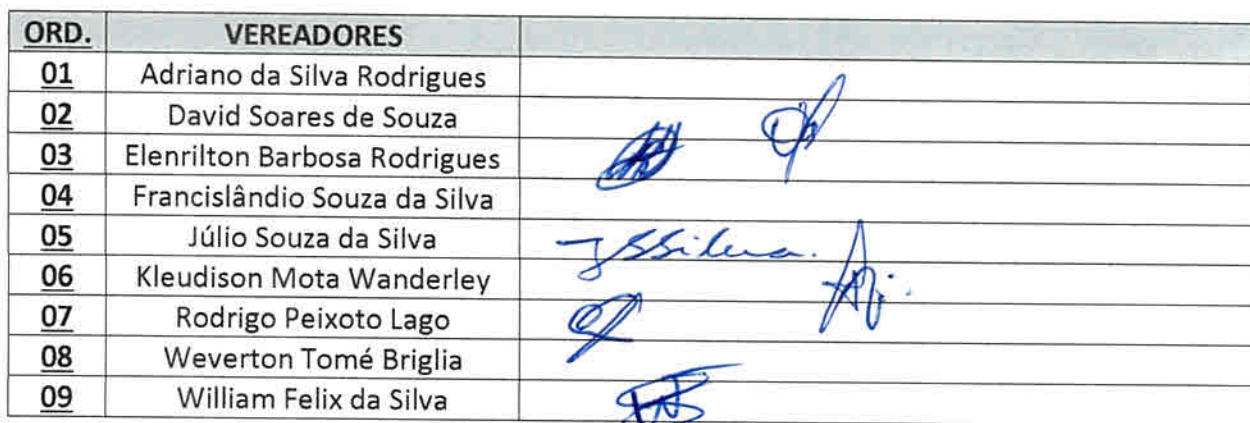 ORD. VEREADORES
01 Adriano da Silva Rodrigues
02 David Soares de Souza
03 Elenrilton Barbosa Rodrigues
04 Francislândio Souza da Silva
05 Júlio Souza da Silva JSSilva.
06 Kleudison Mota Wanderley
07 Rodrigo Peixoto Lago
08 Weverton Tomé Briglia
09 William Felix da Silva